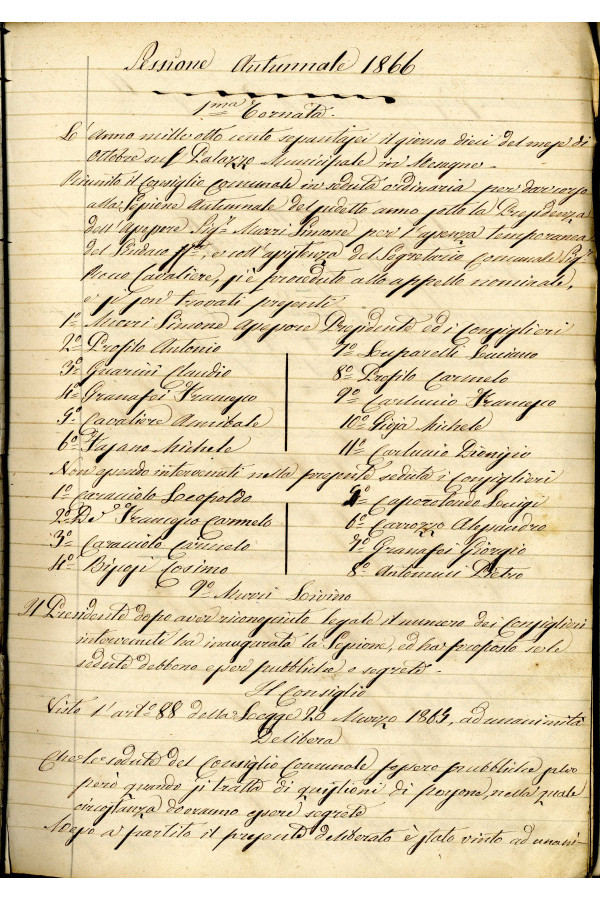 Sessione Autunnale 1866
1ma Tornata
L'anno mille otto cento sessantasei il giorno dieci del mese di
Ottobre sul Palazzo Municipale in Mesagne.
Riunito il Consiglio Comunale in seduta ordinaria per dar corso
alla Sessione Autunnale del suddetto anno sotto la Presidenza
dell'Assessore Sigr Murri Simone per l'assenza temporanea
del Sindaco ff, e coll'assistenza del Segretario Comunale Sigr
Rocco Cavaliere, s'è proceduto allo appello nominale,
e si son trovati presenti
1o Murri Simone Assessore Presidente ed i Consiglieri
2o Profilo Antonio
3o Guarini Claudio
4o Granafei Francesco
5o Cavaliere Annibale
6o Fajano Michele
7o Luparelli Luciano
8o Profilo Carmelo
9o Carluccio Francesco
10o Gioja Michele
11o Carluccio Dionigio
Non essendo intervenuti nella presente seduta i Consiglieri
1o Caracciolo Leopoldo
2o De Francesco Carmelo
3o Caracciolo Carmelo
4o Bipesi Cosimo
5o Caporotondo Luigi
6o Carrozzo Alessandro
7o Granafei Giorgio
8o Antonucci Pietro
9o Murri Livino
Il Presidente dopo aver riconosciuto legale il numero dei Consiglieri
intervenuti ha inaugurata la Sessione, ed ha proposto se le
sedute debbono essere pubbliche o segrete.
Il Consiglio
Visto l'arto 88 della Legge 20 Marzo 1865, ad unanimità
Delibera
Che le sedute del Consiglio Comunale fossero pubbliche salvo
però quando si tratta di quistioni di persone, nella quale
circostanza dovranno essere segrete
Messo a partito il presente deliberato è stato vinto ad unani-